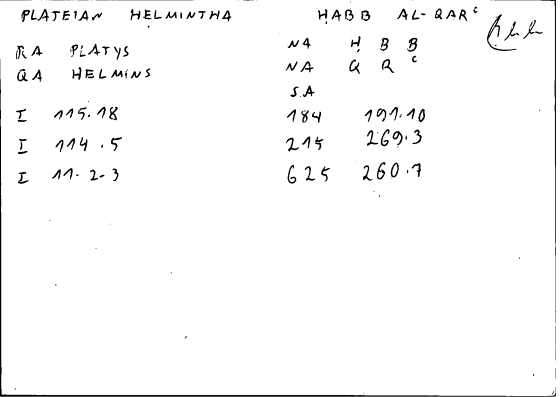 PLATEIAN HELMINTHA ḤABB AL-QARᶜ
RA PLATYS NA Ḥ B B
QA HELMINS NA Q R ᶜ
SA
I 115.18 184 191.10
I 114.5 215 269.3
I 11.2-3 625 260.7